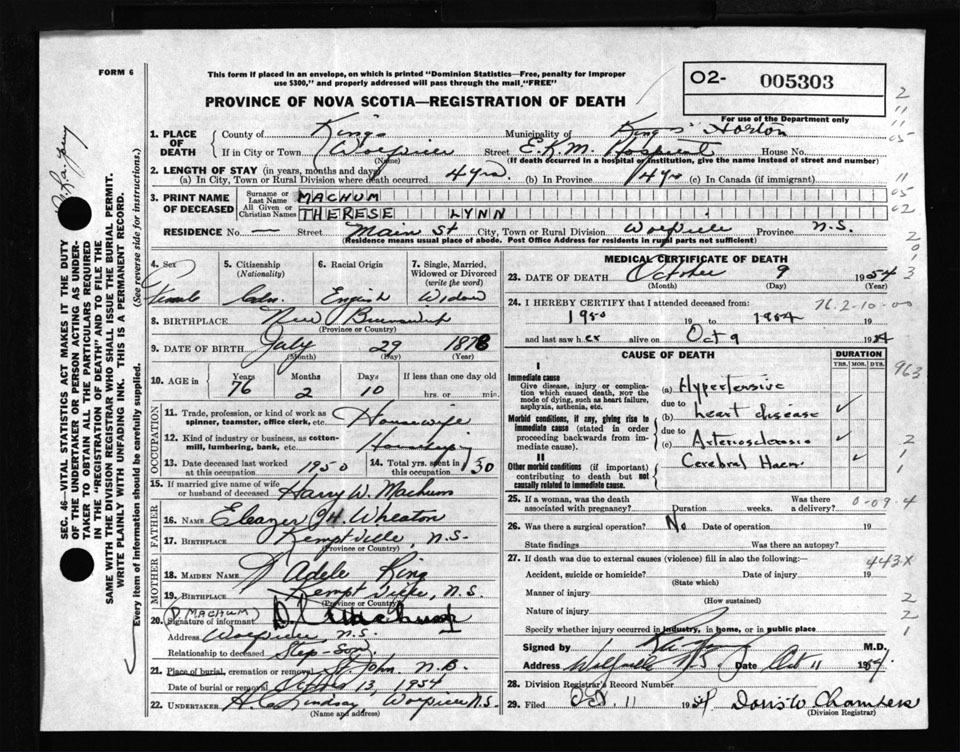 FORM 6
This form if placed in an envelope, on which is printed "Dominion Statistics—Free, penalty for improper
use $300," and properly addressed will pass through the mail "FREE"
PROVINCE OF NOVA SCOTIA—REGISTRATION OF DEATH
02- 005303
For use of the Department only
1. PLACE OF DEATH
County of Kings Municipality of Kings Horton
If in City or Town Wolfville Street E.K.M. Hospital House No.
(Name) (If death occurred in a hospital or institution, give the name instead of street and number)
2. LENGTH OF STAY (in years, months and days)
(a) In City, Town or Rural Division where death occurred 4 yrs. (b) In Province 4 yrs (c) In Canada (if immigrant)
3. PRINT NAME OF DECEASED
Surname or Last Name MACHUM
All Given or Christian Names THERESE LYNN
RESIDENCE No. — Street Main St City, Town or Rural Division Wolfville Province N.S.
(Residence means usual place of abode. Post Office Address for residents in rural parts not sufficient)
4. Sex Female
5. Citizenship (Nationality) Cdn.
6. Racial Origin English
7. Single, Married, Widowed or Divorced (write the word) Widow
8. BIRTHPLACE New Brunswick
(Province or Country)
9. DATE OF BIRTH July 29 1878
(Month) (Day) (Year)
10. AGE in Years 76 Months 2 Days 10 If less than one day old hrs. or min.
OCCUPATION
11. Trade, profession, or kind of work as spinner, teamster, office clerk, etc. Housewife
12. Kind of industry or business, as cotton-mill, lumbering, bank, etc.
13. Date deceased last worked at this occupation 1950
14. Total yrs. spent in this occupation 30
15. If married give name of wife or husband of deceased Harry W. Machum
FATHER
16. NAME Eleazer H. Wheaton
17. BIRTHPLACE Kemptville, N.S.
(Province or Country)
MOTHER
18. MAIDEN NAME Adele King
19. BIRTHPLACE Kemptville, N.S.
(Province or Country)
20. (D MACHUM)
Signature of informant
Address Wolfville N.S.
Relationship to deceased Step-Son
21. Place of burial, cremation or removal St John N.B.
Date of burial or removal 13, 1954
22. UNDERTAKER Lindsay Wolfville N.S.
(Name and address)
MEDICAL CERTIFICATE OF DEATH
23. DATE OF DEATH October 9 1954
(Month) (Day) (Year)
24. I HEREBY CERTIFY that I attended deceased from:
76.2-10-00
1950 to 1954 19
and last saw her alive on Oct 9 1954
CAUSE OF DEATH
DURATION
YRS. MOS. DYS.
I
Immediate cause
Give disease, injury or complication which caused death, NOT the mode of dying, such as heart failure, asphyxia, asthenia, etc.
(a) Hypertensive
due to
(b) heart disease
Morbid conditions, if any, giving rise to immediate cause (stated in order proceeding backwards from immediate cause).
due to
(c) Arteriosclerosis
II
Other morbid conditions (if important) contributing to death but not causally related to immediate cause.
Cerebral Haem
963
25. If a woman, was the death associated with pregnancy? Duration weeks. Was there a delivery?
0-09.4
26. Was there a surgical operation? No Date of operation 19
State findings Was there an autopsy?
27. If death was due to external causes (violence) fill in also the following:
443.X
Accident, suicide or homicide? Date of injury 19
(State which)
Manner of injury
(How sustained)
Nature of injury
Specify whether injury occurred in industry, in home, or in public place
Signed by M.D.
Address Wolfville N.S. Oct 11 1954
28. Division Registrar's Record Number
29. Filed Oct. 11 1954 Doris W Chambers
(Division Registrar)
SEC. 46—VITAL STATISTICS ACT MAKES IT THE DUTY
OF THE UNDERTAKER OR PERSON ACTING AS UNDER-
TAKER TO OBTAIN ALL THE PARTICULARS REQUIRED
IN THE "REGISTRATION OF DEATH" AND TO FILE THE
SAME WITH THE DIVISION REGISTRAR WHO SHALL ISSUE THE BURIAL PERMIT.
WRITE PLAINLY WITH UNFADING INK. THIS IS A PERMANENT RECORD.
Every item of information should be carefully supplied. (See reverse side for instructions.)